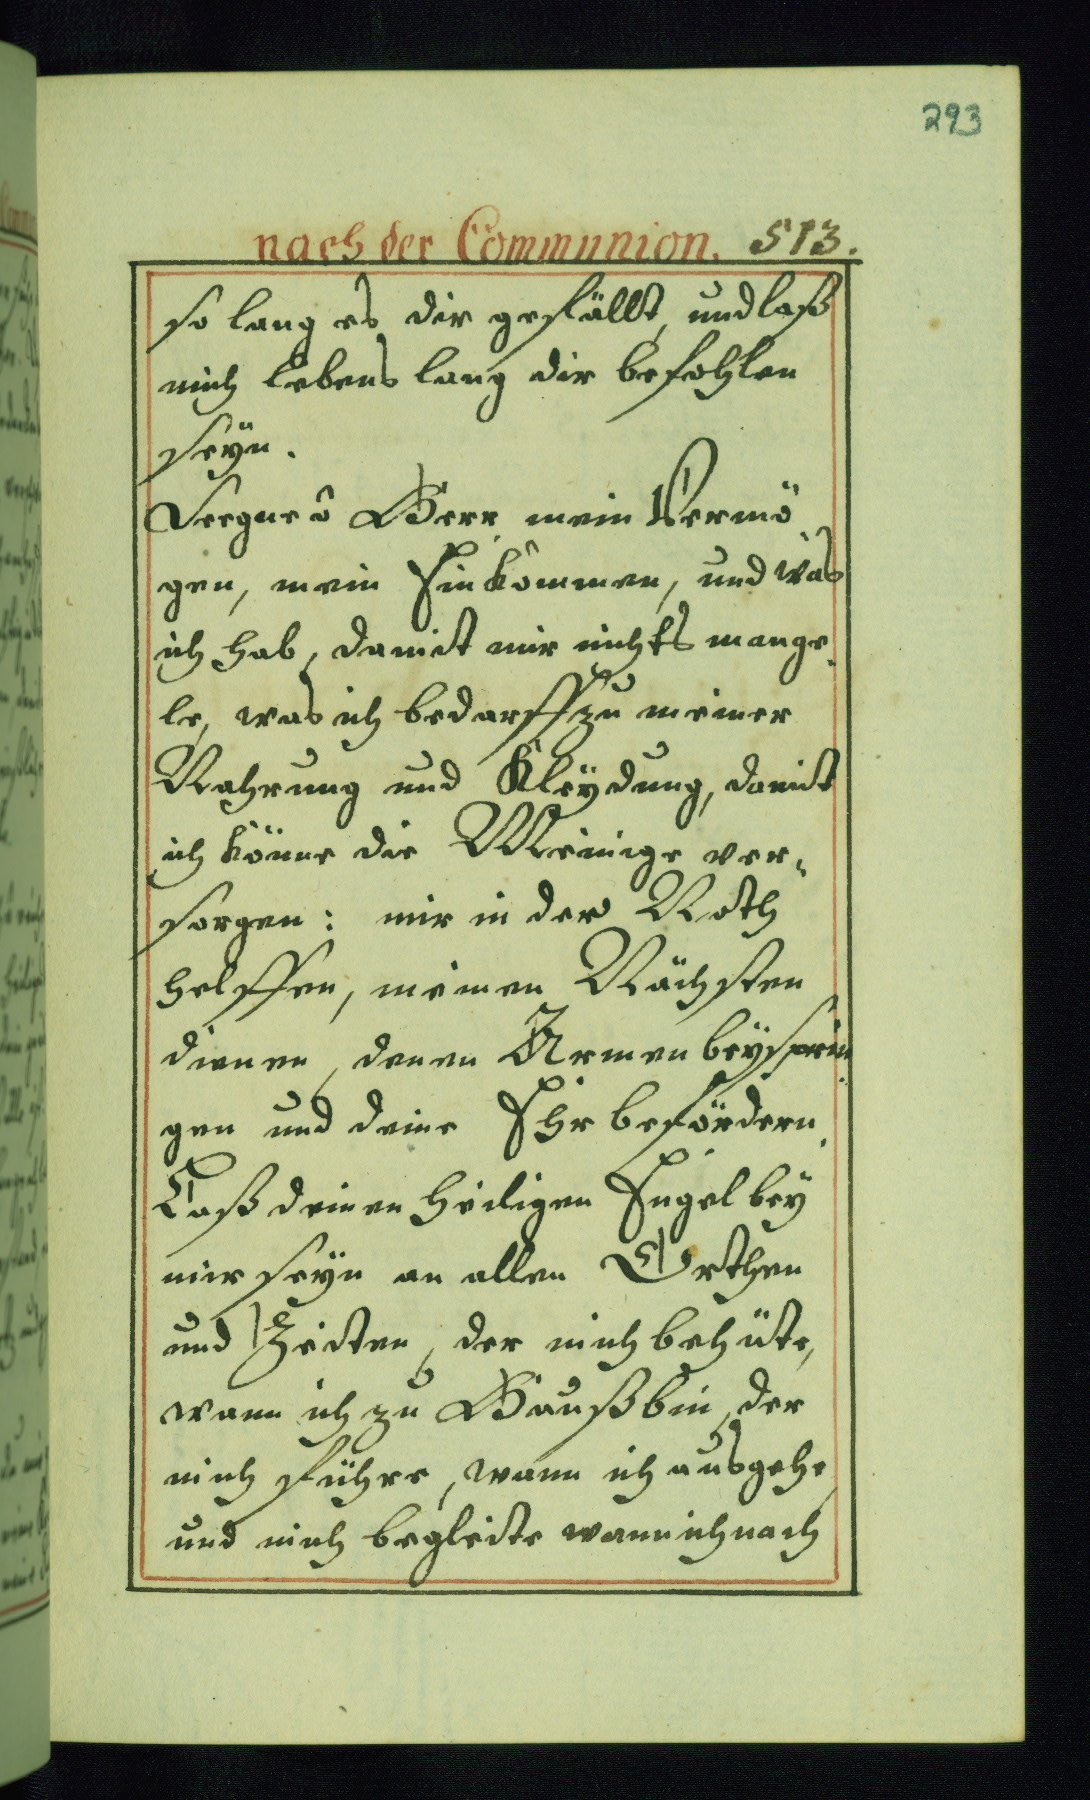 293
nach der Communion. 513.
so lang es dir gefällt, und laß
mich lebens lang dir befohlen
seyn.
Seegne ô Herr mein Vermö¬
gen, mein Einkommen, und was
ich hab, damit mir nichts mange¬
le, was ich bedarff zu meiner
Nahrung und Kleydung, damit
ich könne die Meinige ver¬
sorgen: mir in der Noth
helffen, meinen Nächsten
dienen, denen Armen beysprin¬
gen und deine Ehr befördern.
Laß deinen heiligen Engel bey
mir seyn an allen Orthen
und Zeiten, der mich behüte,
wann ich zu Hauß bin, der
mich führe, wann ich ausgehe,
und mich begleite wann ich nach